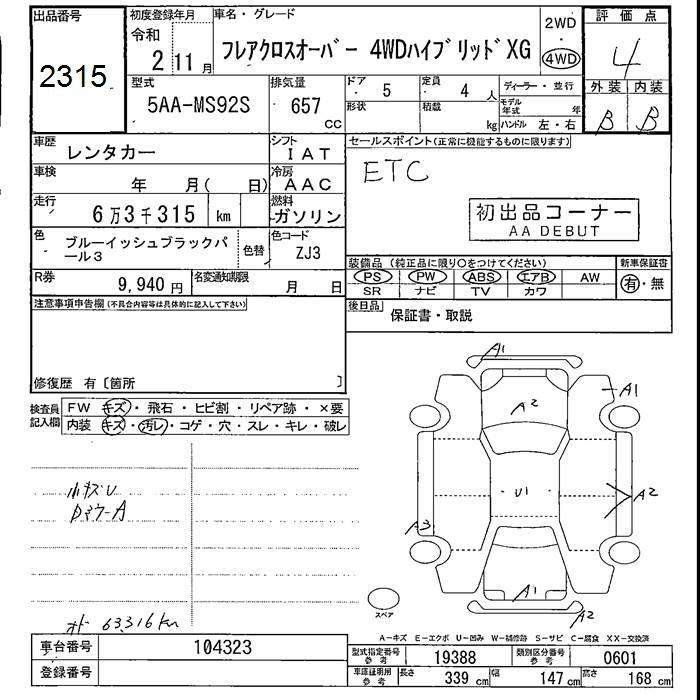 出品番号
2315
初度登録年月
令和
2 11 月
車名・グレード
フレアクロスオーバー 4WDハイブリッドXG
2WD
・
4WD
評価点
4
外装 内装
B B
型式
5AA-MS92S
排気量
657
cc
ドア 5
形状
定員 4 人
積載 kg
ディーラー・並行
モデル年式 年
ハンドル 左・右
車歴 レンタカー
シフト IAT
車検 年 月( 日)
冷房 AAC
走行 6万3千315 km
燃料 ガソリン
色 ブルーイッシュブラックパール3
色替
色コード ZJ3
R券 9,940 円
名変通知期限 月 日
セールスポイント(正常に機能するものに限ります)
ETC
初出品コーナー
AA DEBUT
装備品 (純正品に限り○をつけてください)
新車保証書
PS PW ABS エアB AW
有・無
SR ナビ TV カワ
後日品 保証書・取説
注意事項申告欄(不具合内容等は具体的に記入して下さい)
修復歴 有〔箇所 〕
検査員記入欄
FW キズ・飛石・ヒビ割・リペア跡・×要
内装 キズ・汚レ・コゲ・穴・スレ・キレ・破レ
小キズU
オド 63,316km
A1
A2
A1
U1
A2
A3
A1
A2
スペア
A-キズ E-エクボ U-凹み W-補修跡 S-サビ C-腐食 XX-交換済
車台番号 104323
登録番号
型式指定番号 参考 19388
類別区分番号 参考 0601
車庫証明用 参考
長さ 339 cm
幅 147 cm
高さ 168 cm